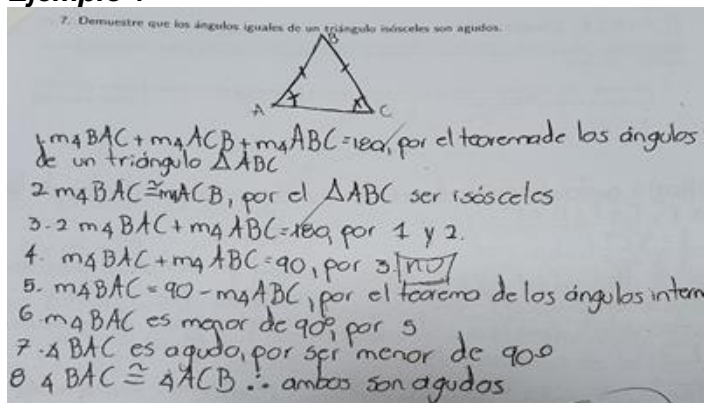 Ejemplo 1
7. Demuestre que los ángulos iguales de un triángulo isósceles son agudos.
B
A
C
1 m∡BAC + m∡ACB + m∡ABC = 180, por el teorema de los ángulos
de un triángulo △ABC
2 m∡BAC ≅ m∡ACB, por el △ABC ser isósceles
3. 2 m∡BAC + m∡ABC = 180, por 1 y 2.
4. m∡BAC + m∡ABC = 90, por 3. no
5. m∡BAC = 90 - m∡ABC, por el teorema de los ángulos intern
6. m∡BAC es menor de 90°, por 5
7. ∡BAC es agudo, por ser menor de 90°
8 ∡BAC ≅ ∡ACB ∴ ambos son agudos